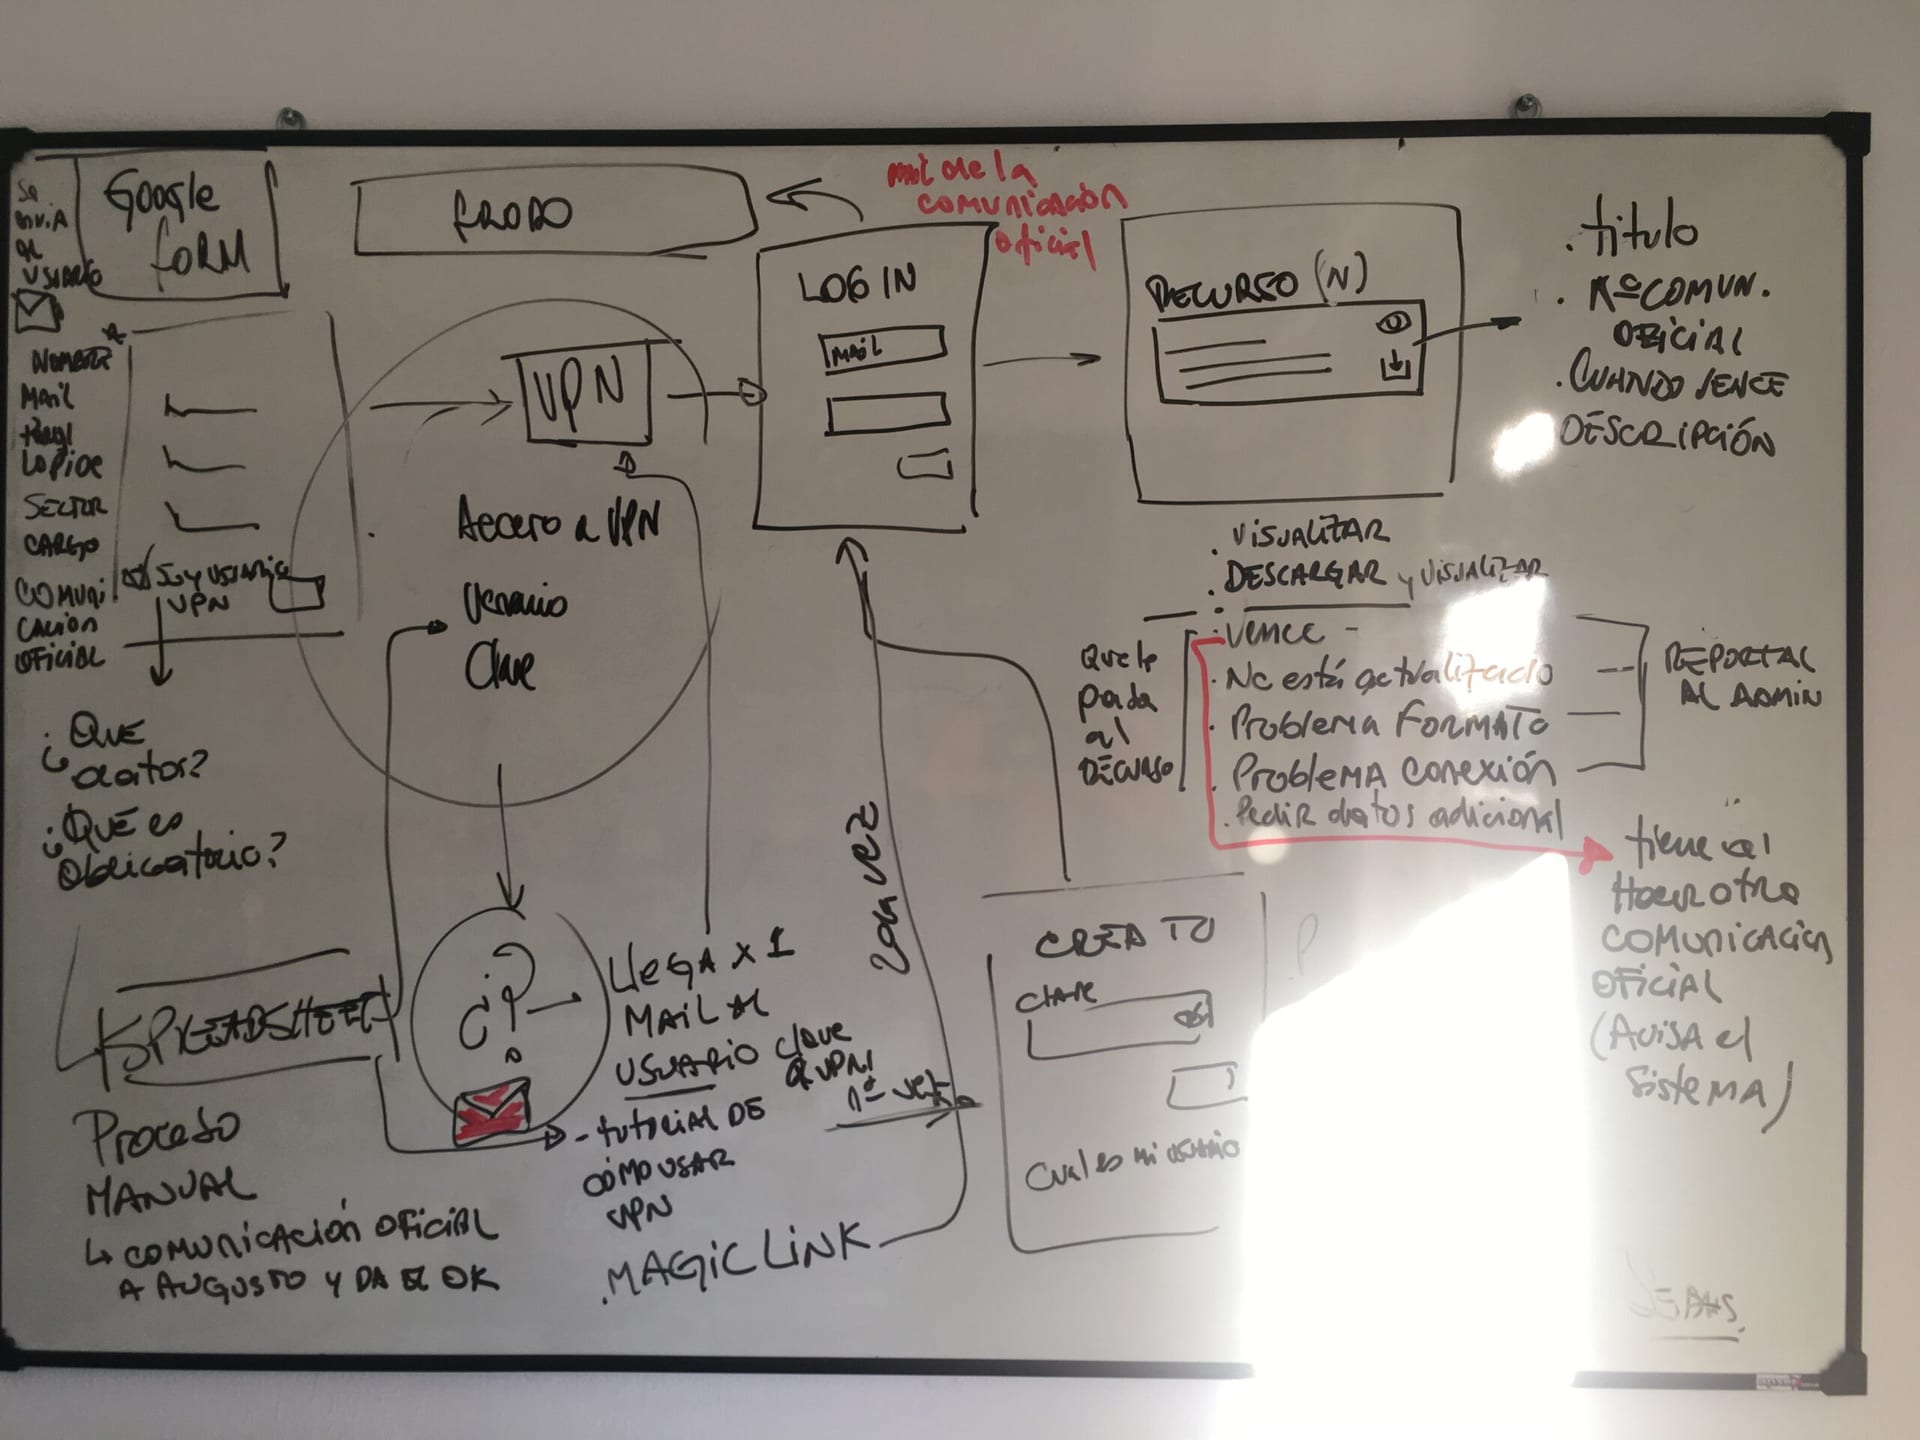 Se
envía
al
usuario
Google
form
FRODO
mail de la
comunicación
oficial
LOGIN
MAIL
RECURSO (N)
. título
. Nº COMUN.
OFICIAL
. CUANDO VENCE
DESCRIPCIÓN
NOMBRE
MAIL
SECTOR
CARGO
COMUNI
CACIÓN
OFICIAL
SOY USUARIO
VPN
VPN
Acceso a VPN
Usuario
Clave
. VISUALIZAR
. DESCARGAR y VISUALIZAR
Que le
pasa
al
RECURSO
. Vence -
. No está actualizado
. Problema FORMATO
. Problema Conexión
. Pedir datos adicional
REPORTAR
AL ADMIN
¿Qué
datos?
¿Qué es
obligatorio?
SPREADSHEET
Proceso
MANUAL
↳ COMUNICACIÓN OFICIAL
A AUGUSTO Y DA EL OK
¿?
LLEGA X 1
MAIL AL
USUARIO clave
VPN
- tutorial DE
CÓMO USAR
VPN
. MAGIC LINK
2da VEZ
1ª vez
CREA TU
CLAVE
Cual es mi usuario
tiene
Hacer otra
COMUNICACIÓN
OFICIAL
(Avisa el
Sistema)